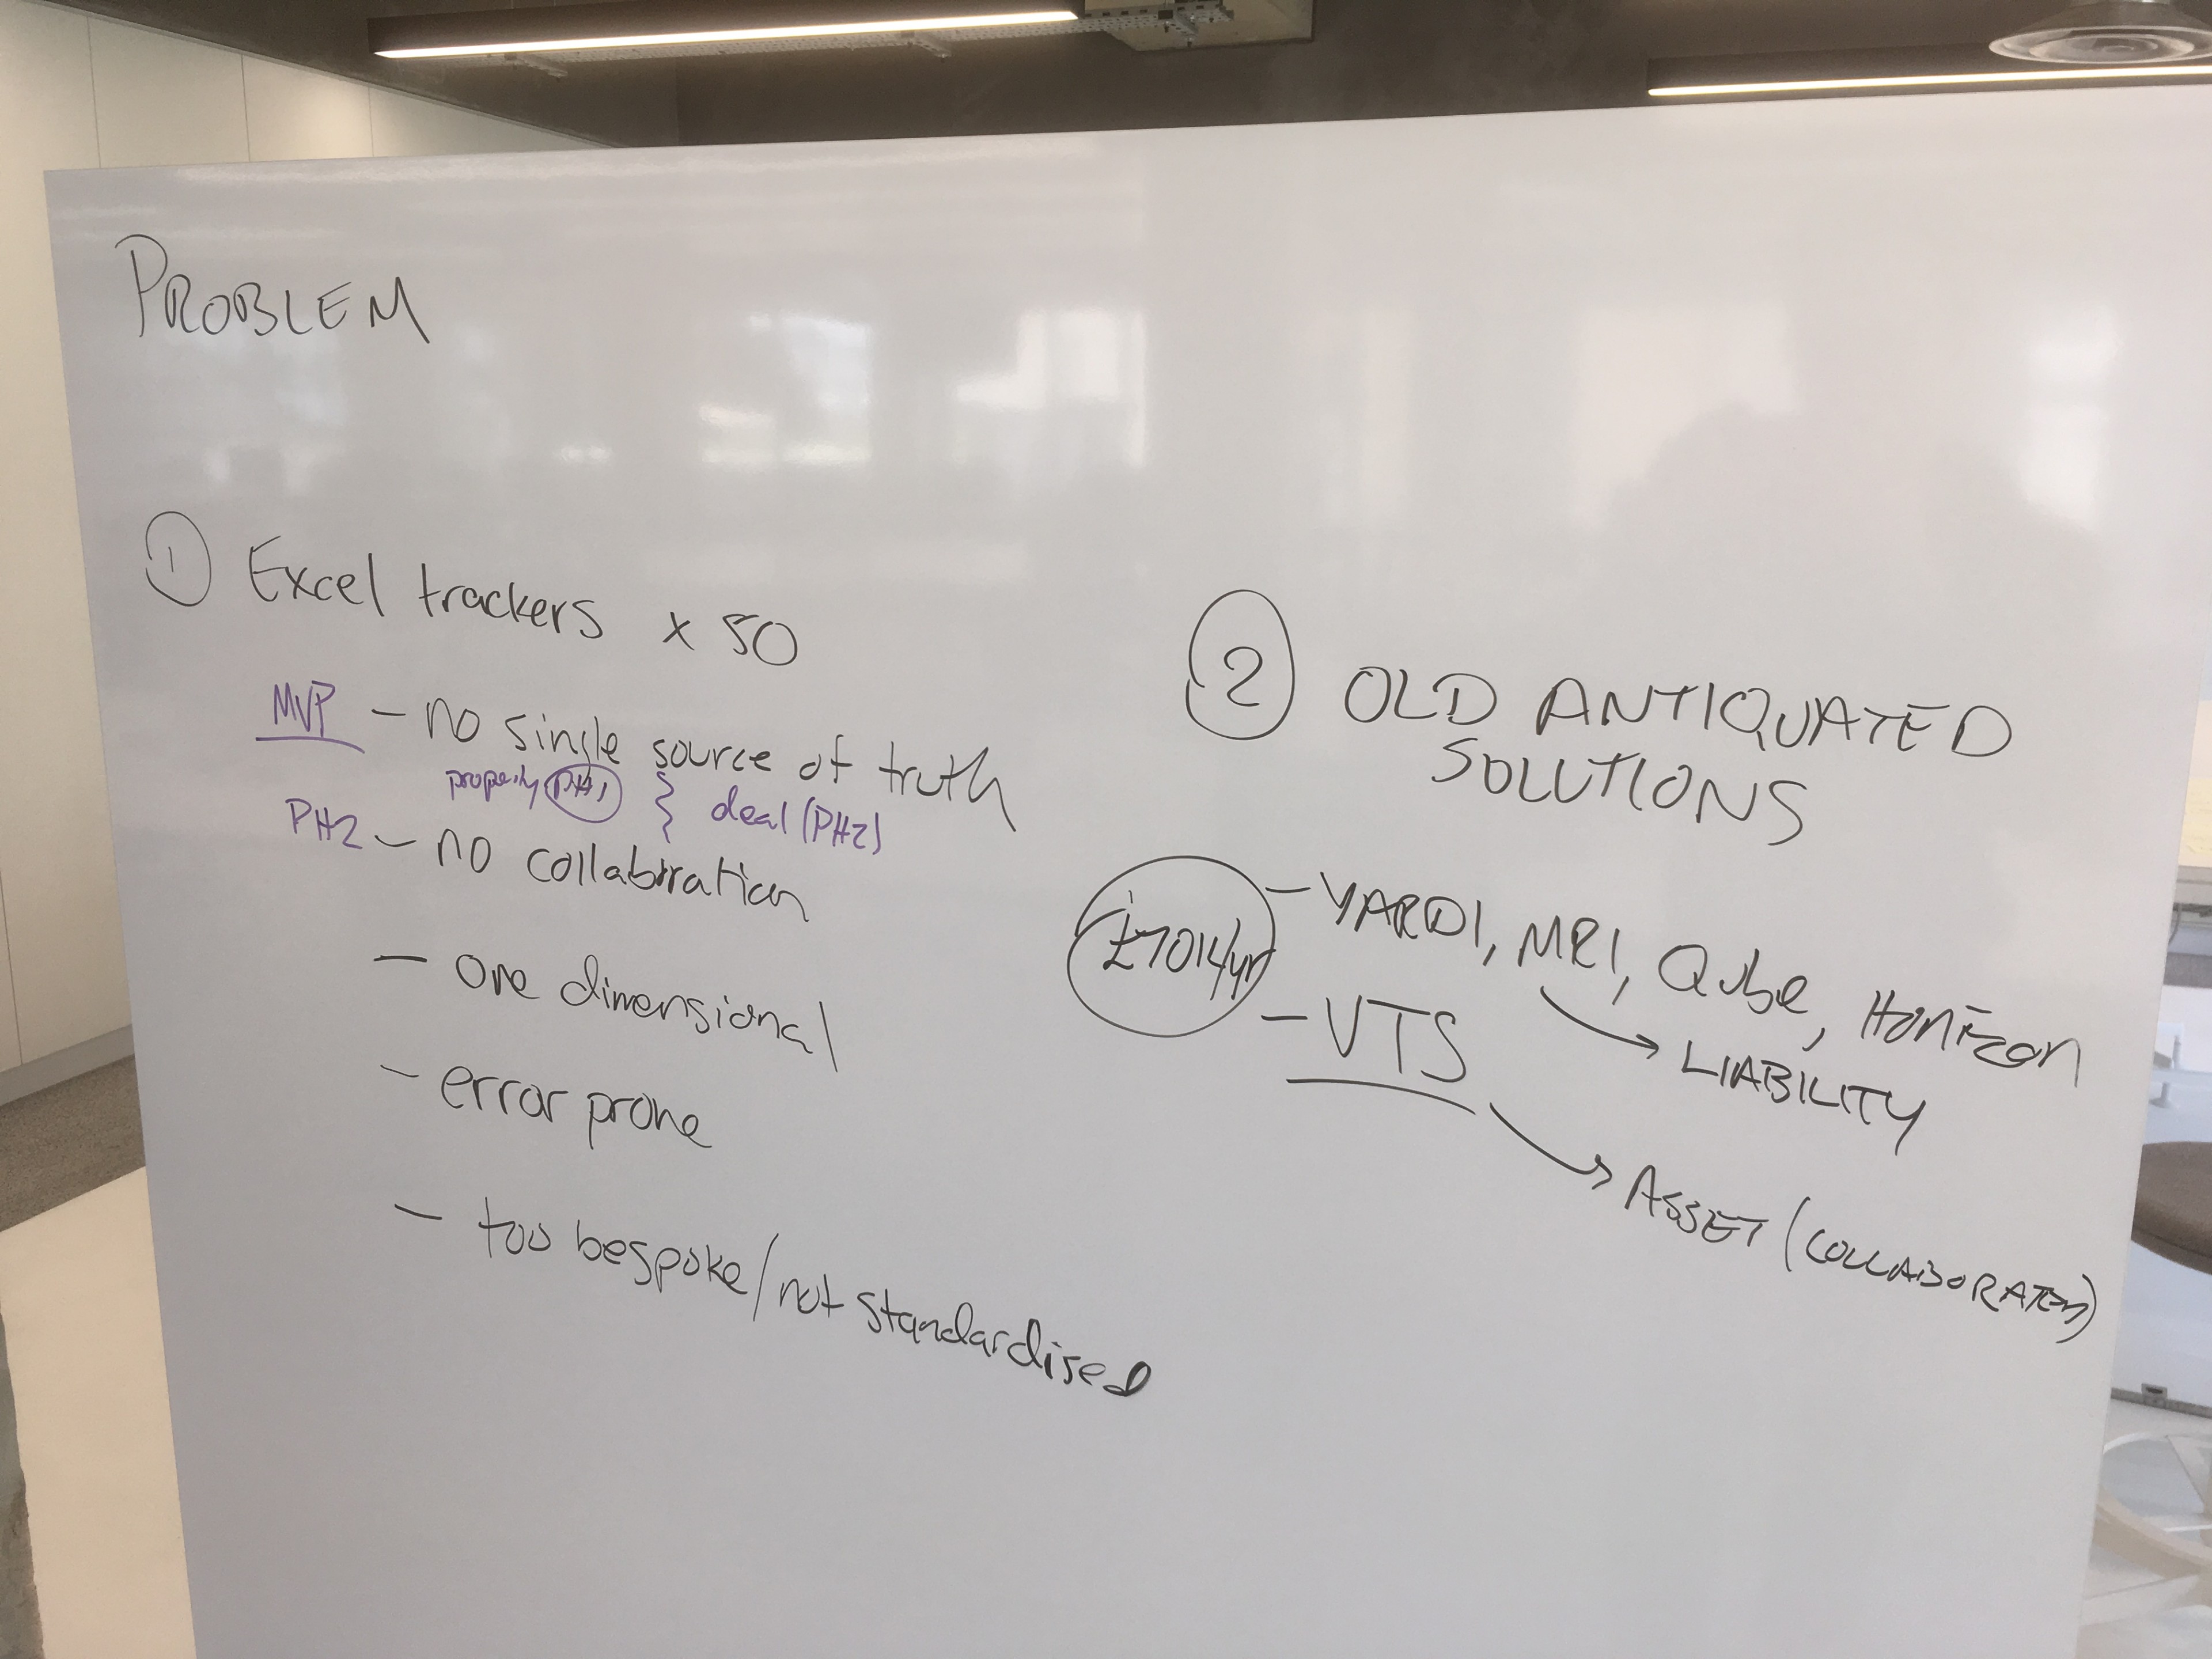 PROBLEM
① Excel trackers x 50
MVP - no single source of truth
property PH1 } deal (PH2)
PH2 - no collaboration
- one dimensional
- error prone
- too bespoke/not standardised
② OLD ANTIQUATED
SOLUTIONS
£70K/yr
- YARDI, MRI, Qube, Horizon
→ LIABILITY
- VTS
→ ASSET (COLLABORATION)